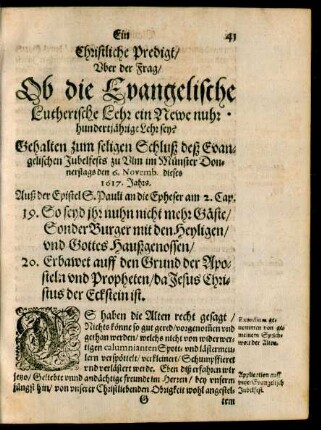 Ein 41
Christliche Predigt/
Vber der Frag/
Ob die Evangelische
Lutherische Lehr ein Newe nuhr
hundertjährige Lehr sey?
Gehalten zum seligen Schluß deß Evan-
gelischen Jubelfests zu Vlm im Münster Don-
nerstags den 6. Novemb. dieses
1617. Jahrs.
Auß der Epistel S. Pauli an die Epheser am 2. Cap.
19. So seyd jhr nuhn nicht mehr Gäste/
Sonder Burger mit den Heyligen/
vnd Gottes Haußgenossen/
20. Erbawet auff den Grund der Apo-
steln vnd Propheten/ da Jesus Chri-
stus der Eckstein ist.
ES haben die Alten recht gesagt/
Nichts könne so gut gered/ vorgenom̃en vnd
gethan werden/ welchs nicht von widerwer-
tigen calumnianten Spott vnd lästermeu-
lern verspöttelt/ verkleinert/ Schumpffieret
vnd verlästert werde. Eben diß erfahren wir
jetzo/ Geliebte vnnd andächtige freunde im Herren/ bey vnserm
jüngst hin/ von vnserer Christliebenden Obrigkeit wohl angestel-
G
Exordium ge-
nommen von ge-
meinem Sprich-
wort der Alten.
Application auff
Evangelisch
Jubelfest.